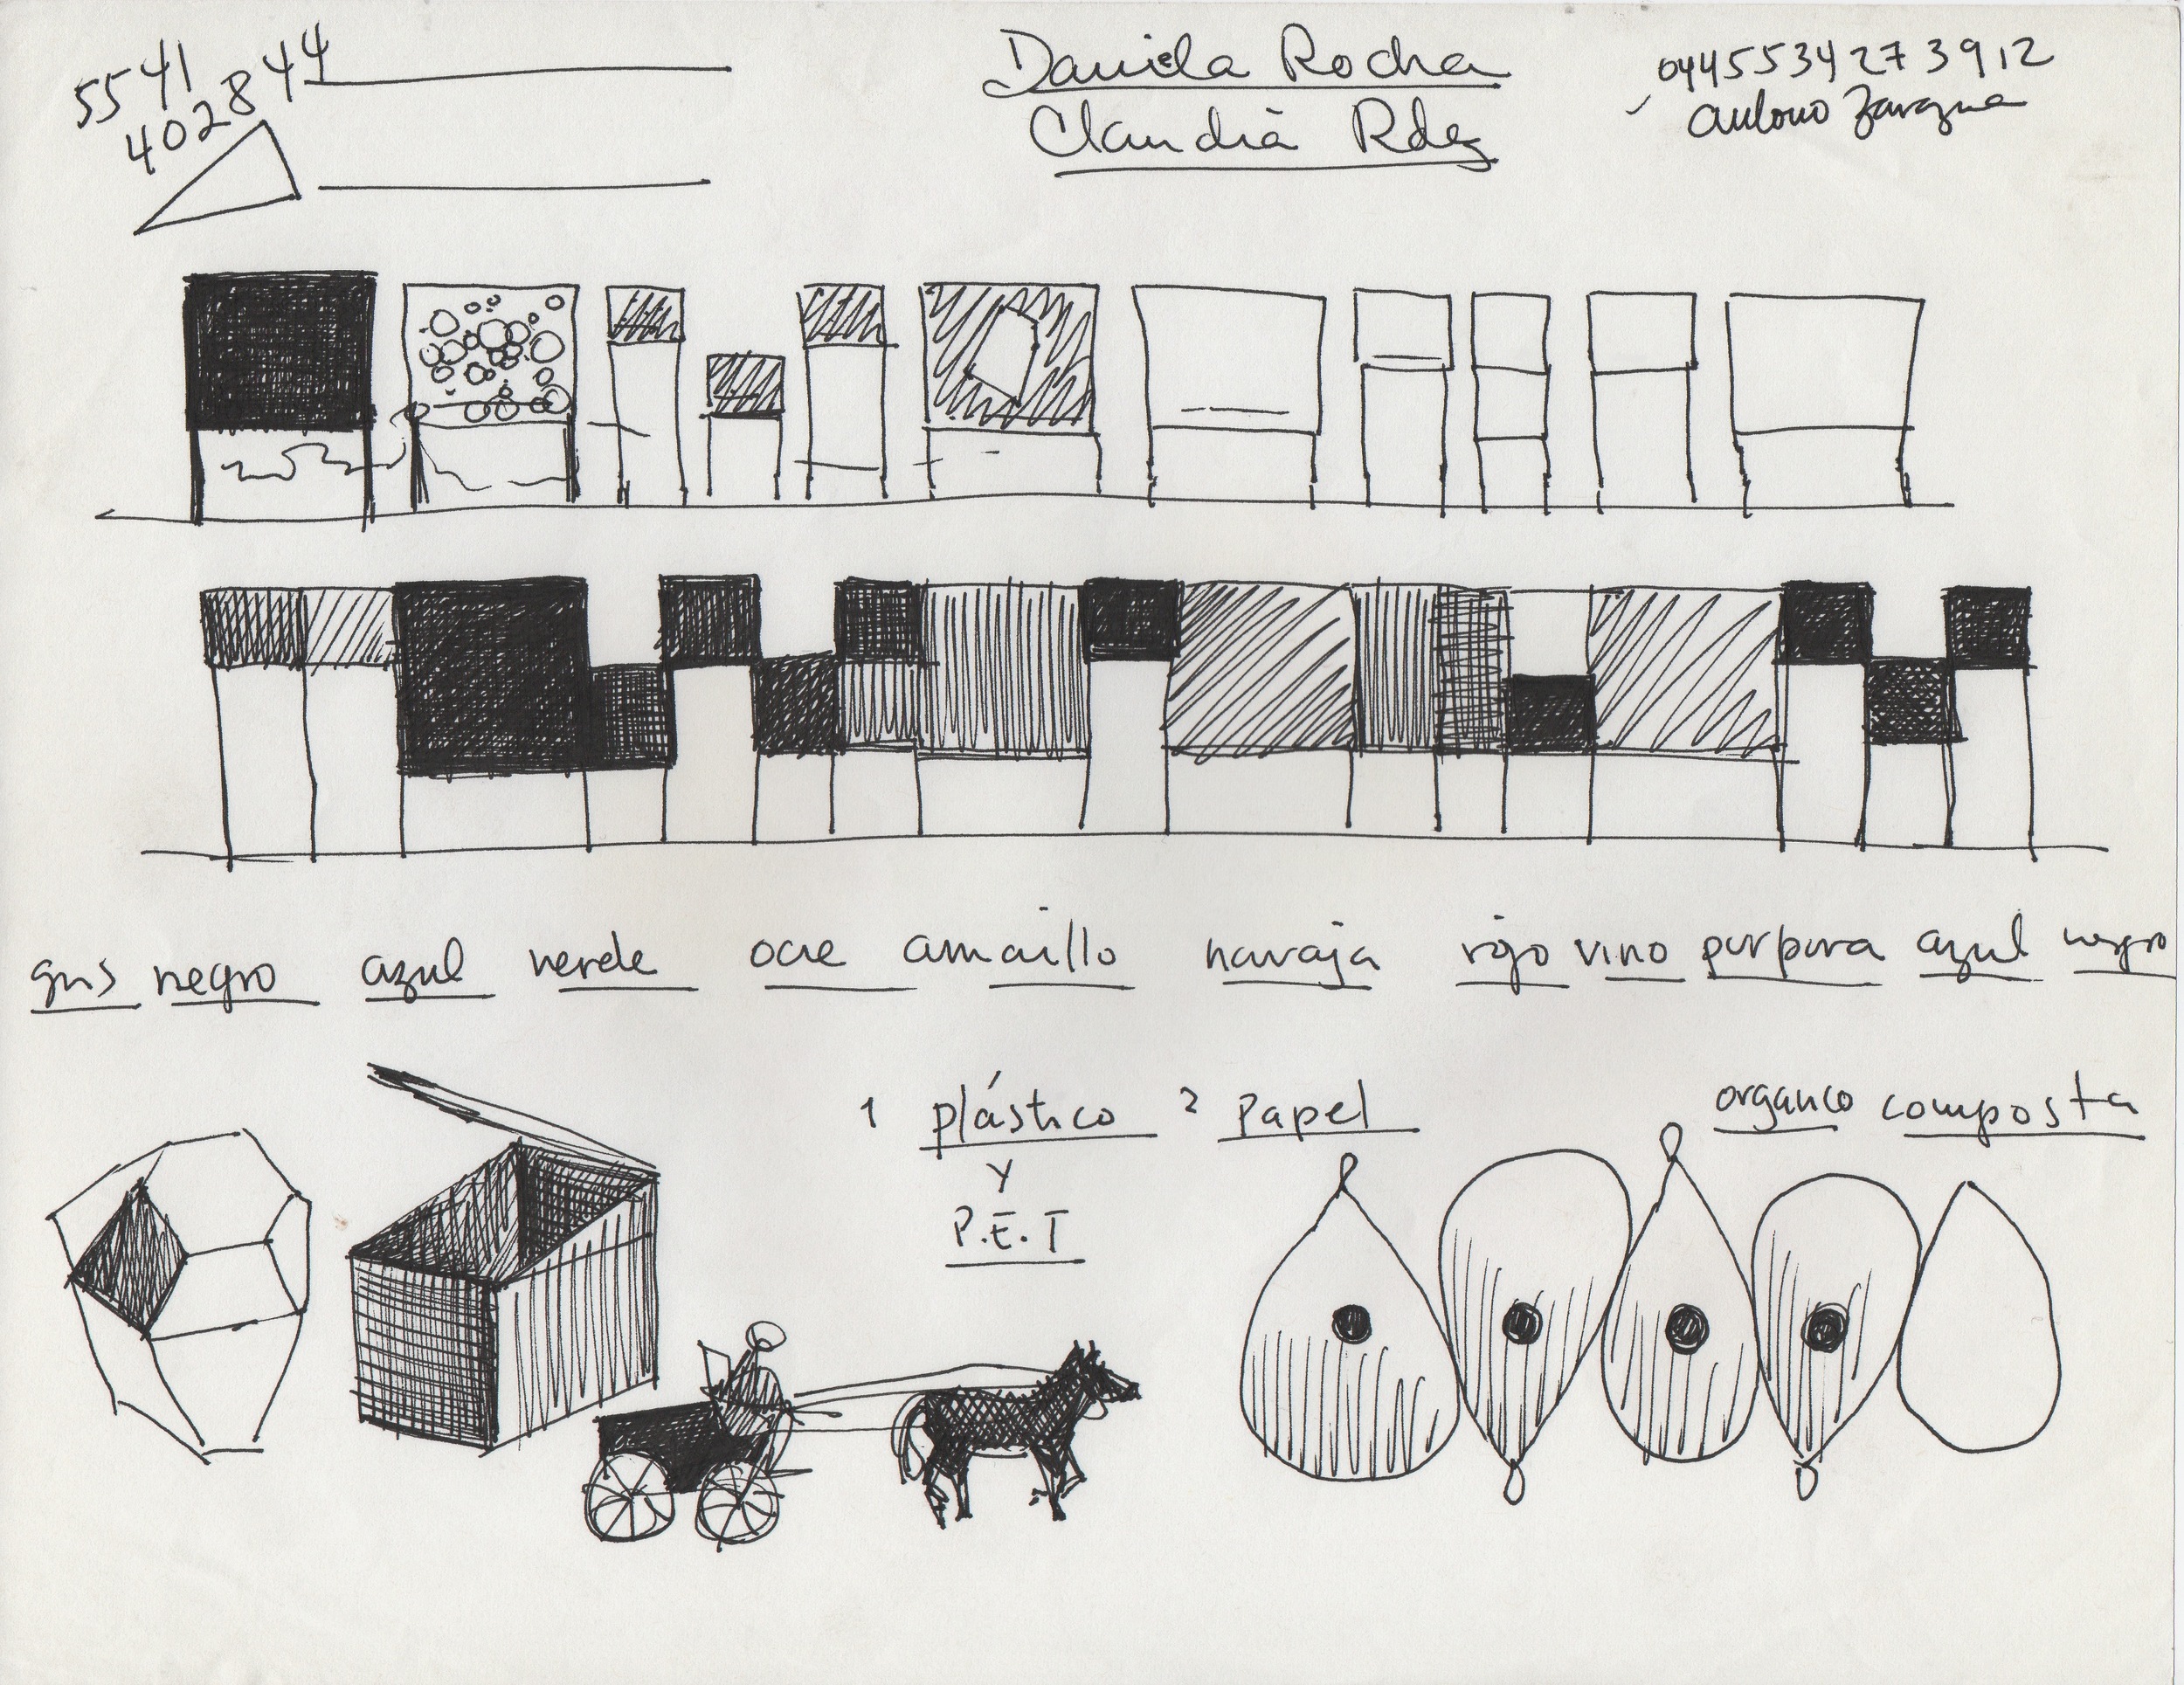 5541
402844
Daniela Rocha
Claudia Rdz
0445534273912
gris negro azul verde ocre amarillo naraja rojo vino purpura azul negro
1 plástico 2 papel organico composta
y
P.E.T